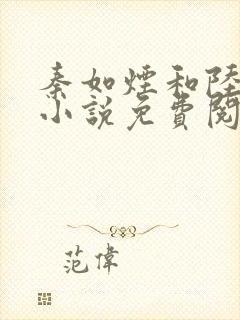 秦如煙和陸
小說免費閱
范偉